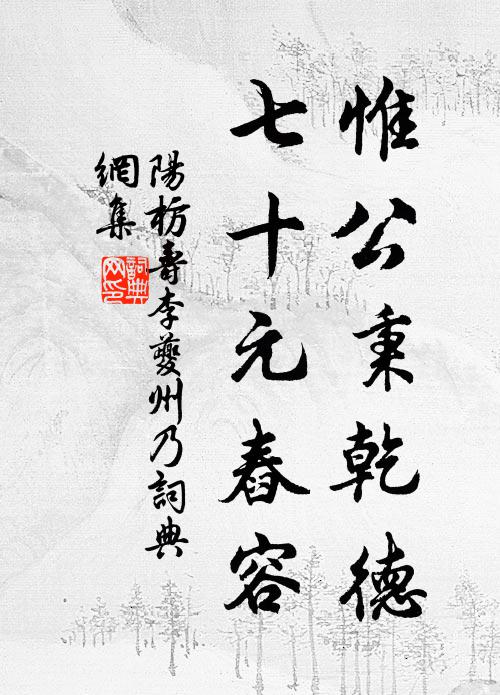 惟公秉乾德
七十元舂容
陽枋壽李夔州乃詞典
網集
詞典
网印